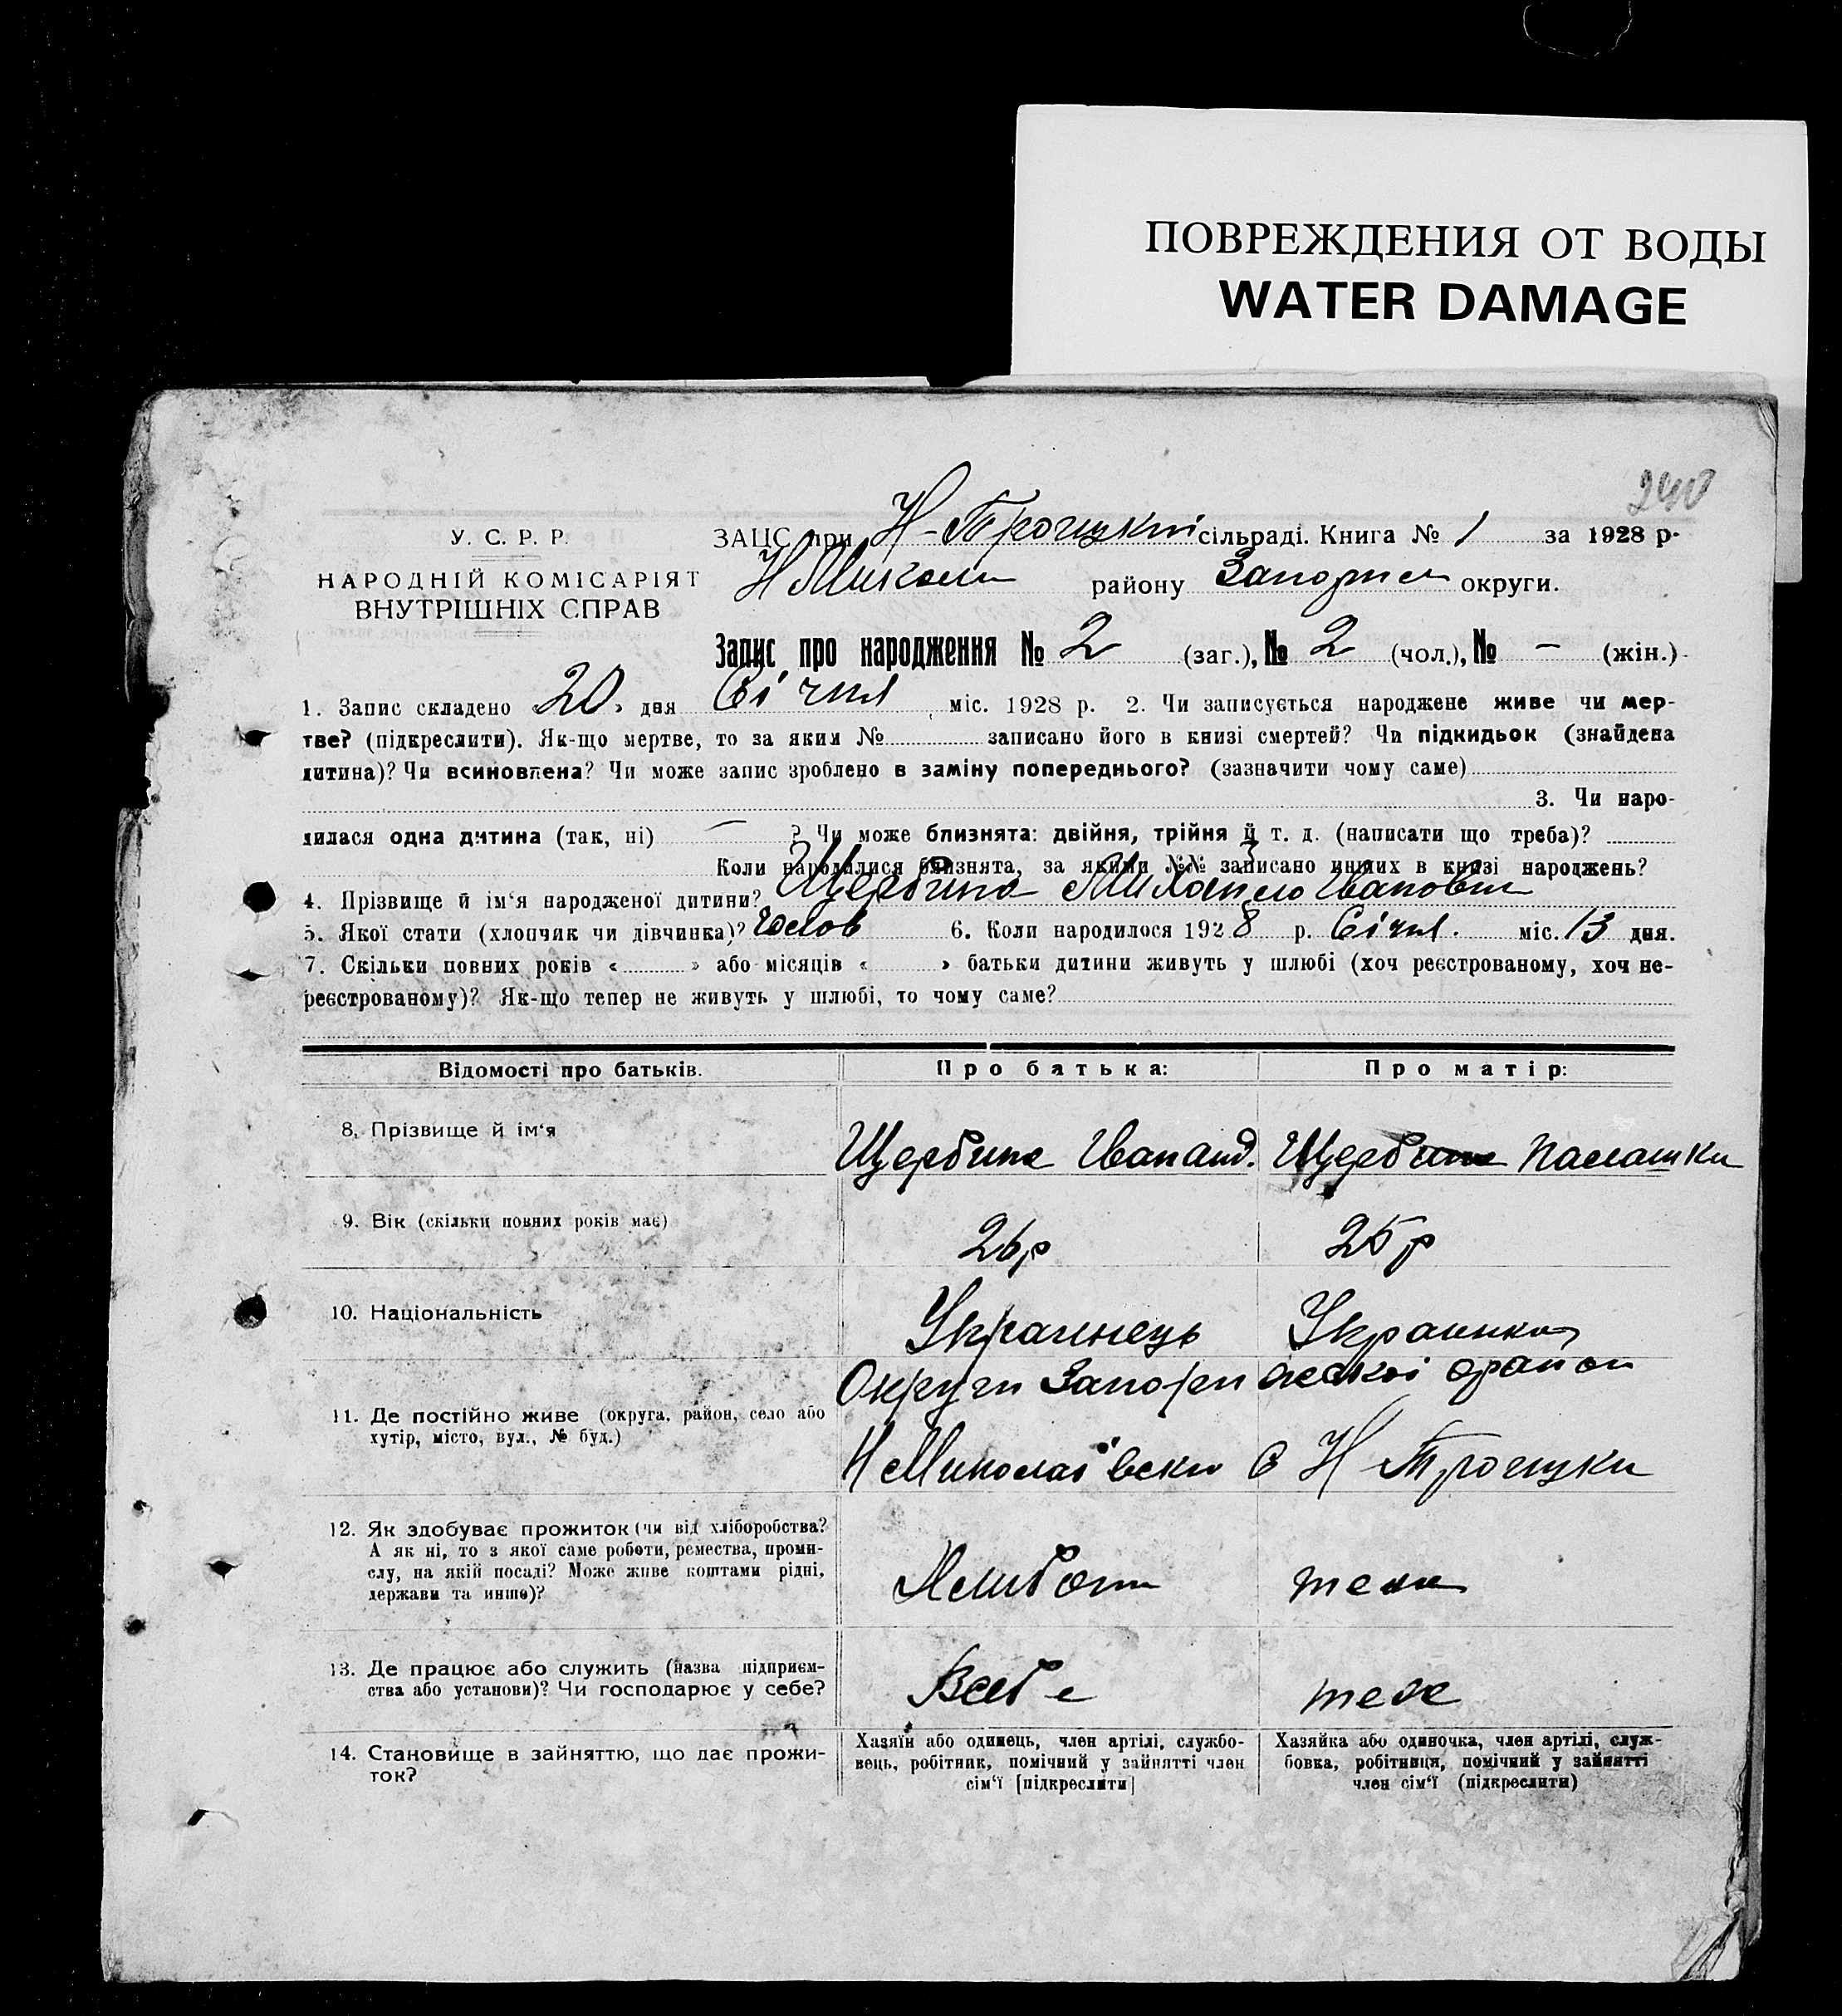 ПОВРЕЖДЕНИЯ ОТ ВОДЫ
WATER DAMAGE
240
У. С. Р. Р.
НАРОДНІЙ КОМІСАРІЯТ
ВНУТРІШНІХ СПРАВ
ЗАЦС при Н-Троицкій сільраді. Книга № 1 за 1928 р.
Н Микола района Запориж округи.
Запис про народження № 2 (заг.), № 2 (чол.), № – (жін.)
1. Запис складено «20» дня Січня міс. 1928 р. 2. Чи записується народжене живе чи мер-
тве? (підкреслити). Як-що мертве, то за яким № записано його в книзі смертей? Чи підкидьок (знайдена
дитина)? Чи всиновлена? Чи може запис зроблено в заміну попереднього? (зазначити чому саме)
3. Чи наро-
дилася одна дитина (так, ні) — ? Чи може близнята: двійня, трійня й т. д. (написати що треба)?
Коли народилися близнята, за якими №№ записано инших в книзі народжень?
4. Прізвище й ім‘я народженої дитини? Щербина Михайло Іванович
5. Якої стати (хлопчик чи дівчинка)? Чолов 6. Коли народилося 1928 р. Січня. міс. 13 дня.
7. Скільки повних років « » або місяців « » батьки дитини живуть у шлюбі (хоч реєстрованому, хоч не-
реєстрованому)? Як-що тепер не живуть у шлюбі, то чому саме?
Відомості про батьків. Про батька: Про матір:
8. Прізвище й ім‘я
Щербина Иван Щербина Палашки
9. Вік (скільки повних років має)
26 р 25 р
10. Національність
Украинець Украинка
Округи Запорижской район
11. Де постійно живе (округа, район, село або
хутір, місто, вул., № буд.)
Н Миколаївски с Н Троицки
12. Як здобуває прожиток (чи від хліборобства?
А як ні, то з якої саме роботи, ремества, проми-
слу, на якій посаді? Може живе коштами рідні,
держави та инше)?
Хлибоп теж
13. Де працює або служить (назва підприєм-
ства або установи)? Чи господарює у себе?
Всебе теж
14. Становище в зайняттю, що дає прожи-
ток?
Хазяїн або одинець, член артілі, службо-
вець, робітник, помічний у зайнятті член
сім‘ї [підкреслити]
Хазяйка або одиночка, член артілі, служ-
бовка, робітниця, помічний у зайнятті
член сім‘ї (підкреслити)